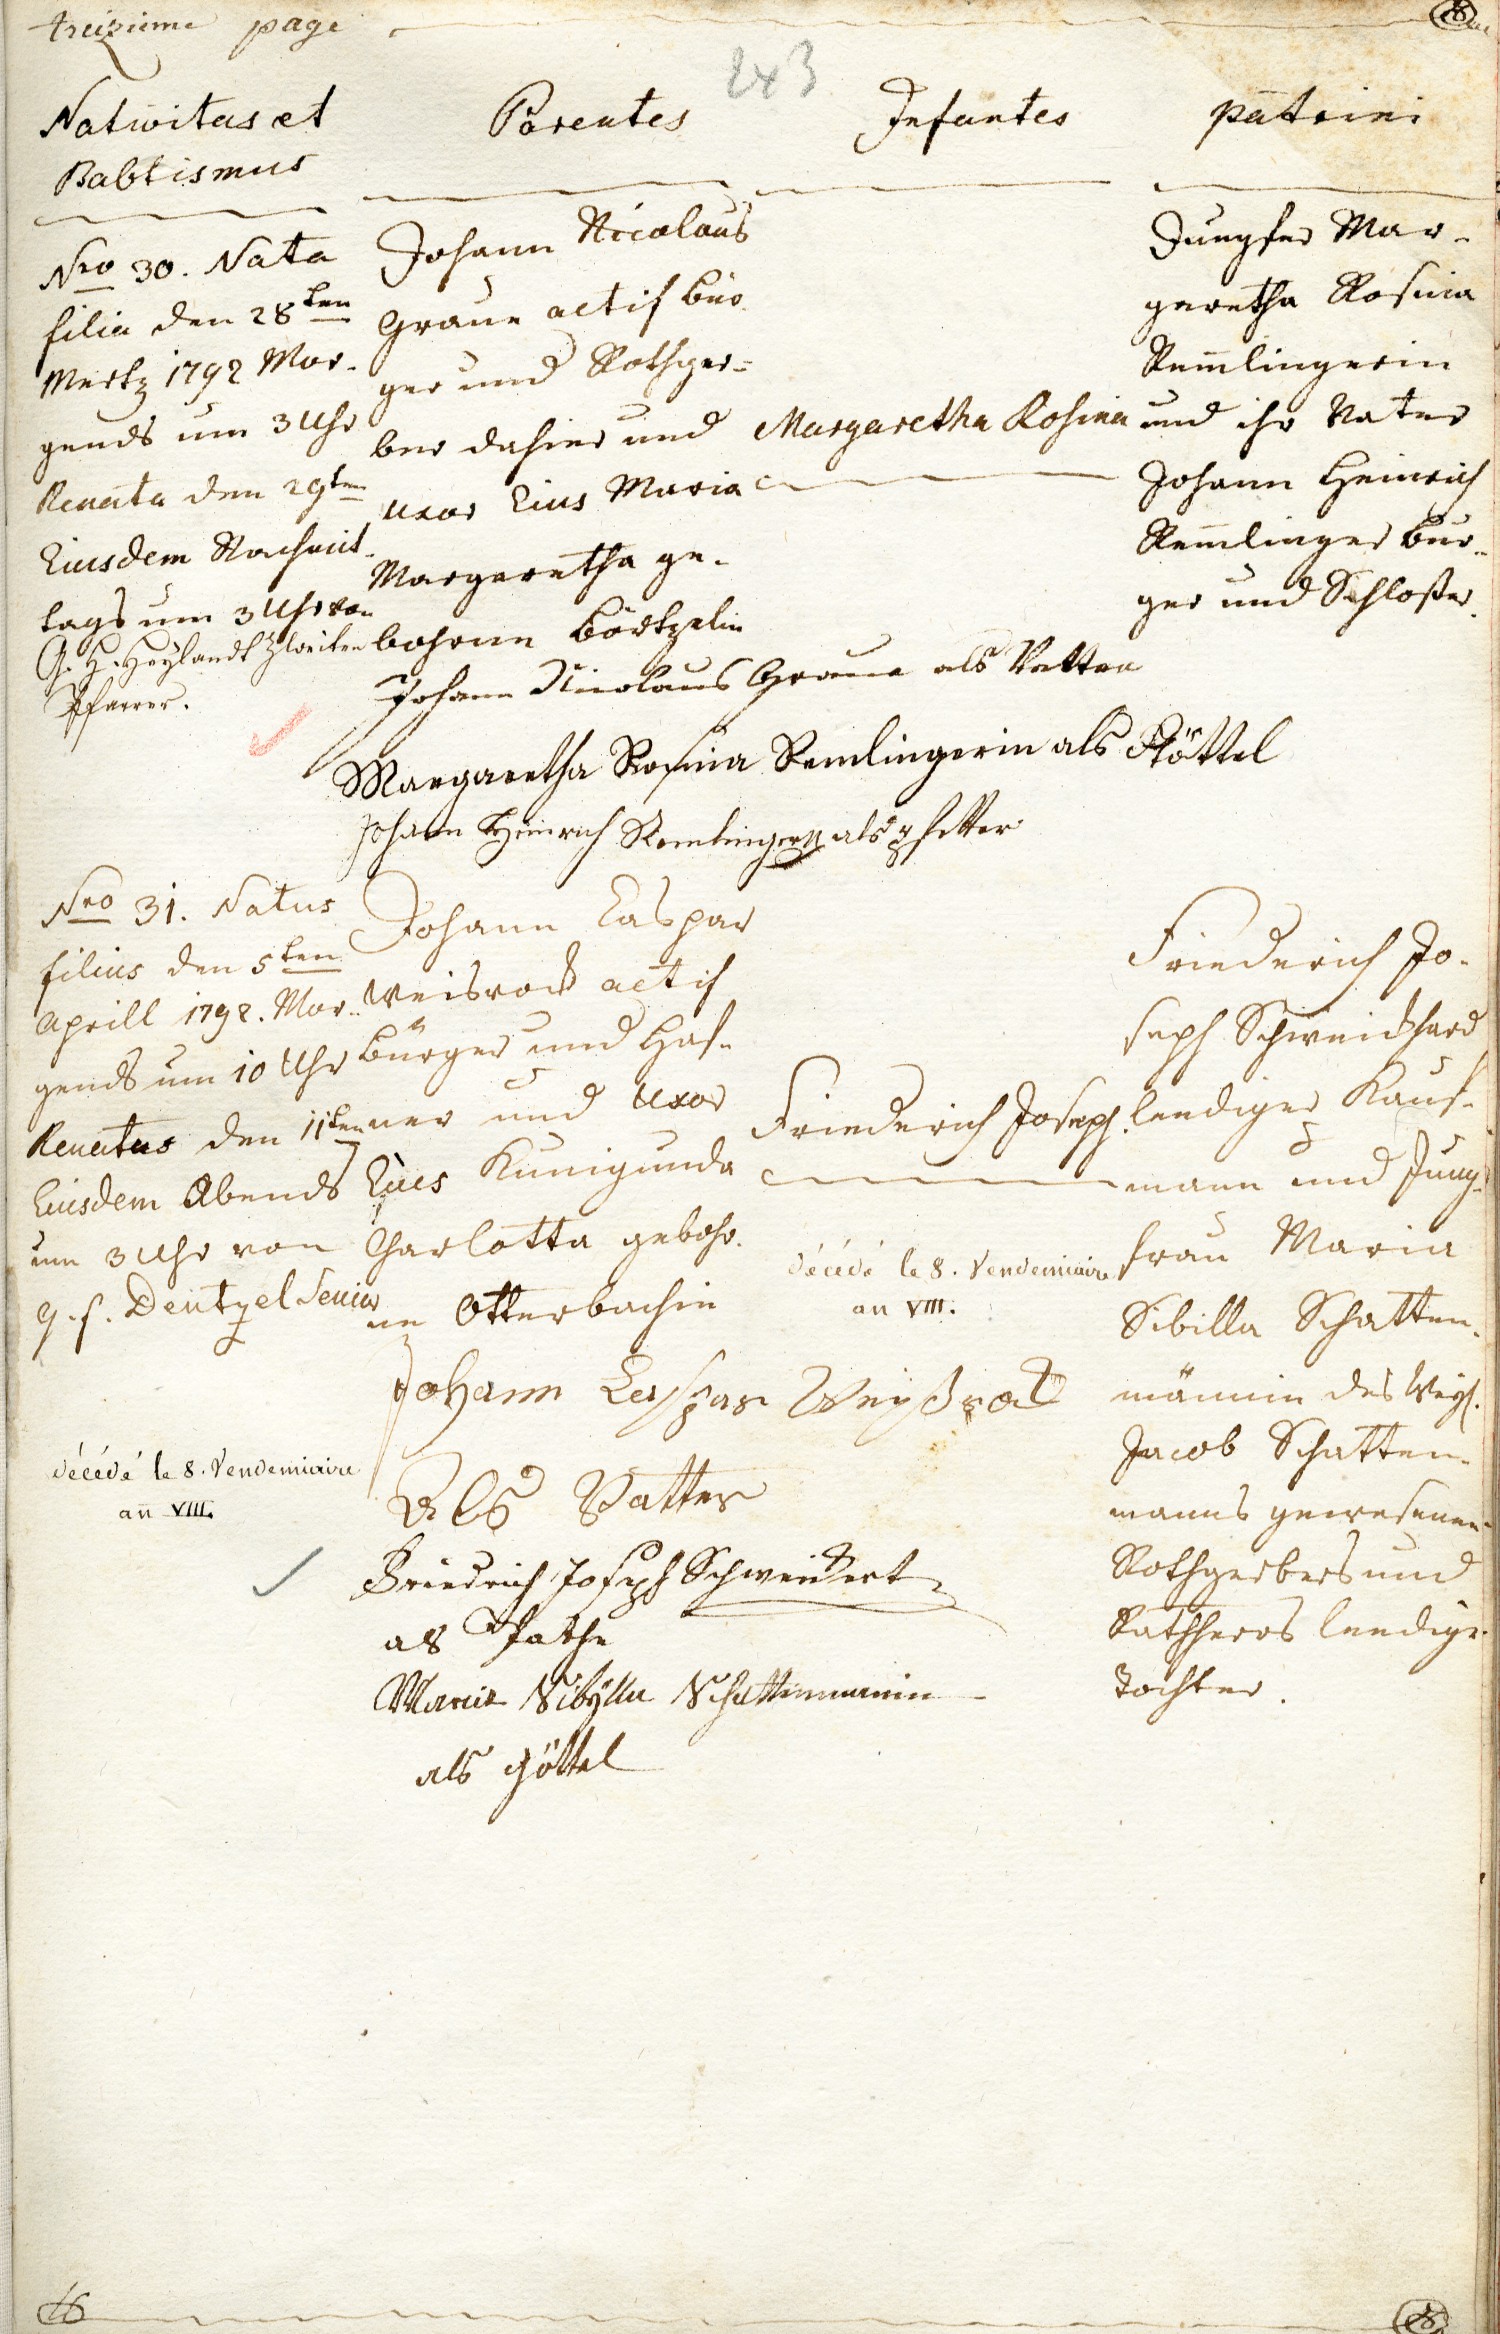 treizieme page
243
Nativitas et
Babtismus
Parentes
Infantes
patrini
Nro 30. Nata
filia den 28ten
Mertz 1792 Mor-
gends um 3 Uhr
Renata den 29ten
Eiusdem Nachmit-
tags um 3 Uhr von
G. H. Heylandt Zweiten
Pfarrer.
Johann Nicolaus
Graue actif bür-
ger und Rothger=
ber dahier und
uxor Eius Maria
Margaretha ge-
bohrne
Margaretha Rosina
Jungfer Mar-
garetha Rosina
Rem̅lingerin
und ihr Vater
Johann Heinrich
Rem̅linger bür-
ger und Schloßer.
Johann Nicolaus Graue als Vatter
Margaretha Rosina Remlingerin als Göttel
Johann Heinrich Remlinger als Phetter
Nro 31. Natus
filius den 5ten
Aprill 1792. Mor-
gends um 10 Uhr
Renatus den 11ten
Eiusdem Abends
um 3 Uhr von
G. F. Dentzel Senior
décédé le 8. Vendemiaire
an VIII.
Johann Caspar
Weisrock actif
bürger und Haf-
ner und Uxor
Eius Kunigunda
Charlotta gebohr-
ne Otterbachin
Friederich Joseph.
décédé le 8. Vendemiaire
an VIII.
Friederich Jo-
seph Schweickhard
leediger Kauf-
mann und Jung-
frau Maria
Sibilla Schatten-
männin des Weyl.
Jacob Schatten-
manns gewesenen
Rothgerbers und
Rathherrs leedige
Tochter.
Johann Casspar Weyßrot
Als Vatter
Friedrich Joseph Schweickert
als Pathe
Maria Sibÿlla Schattenmannin
als Göttel